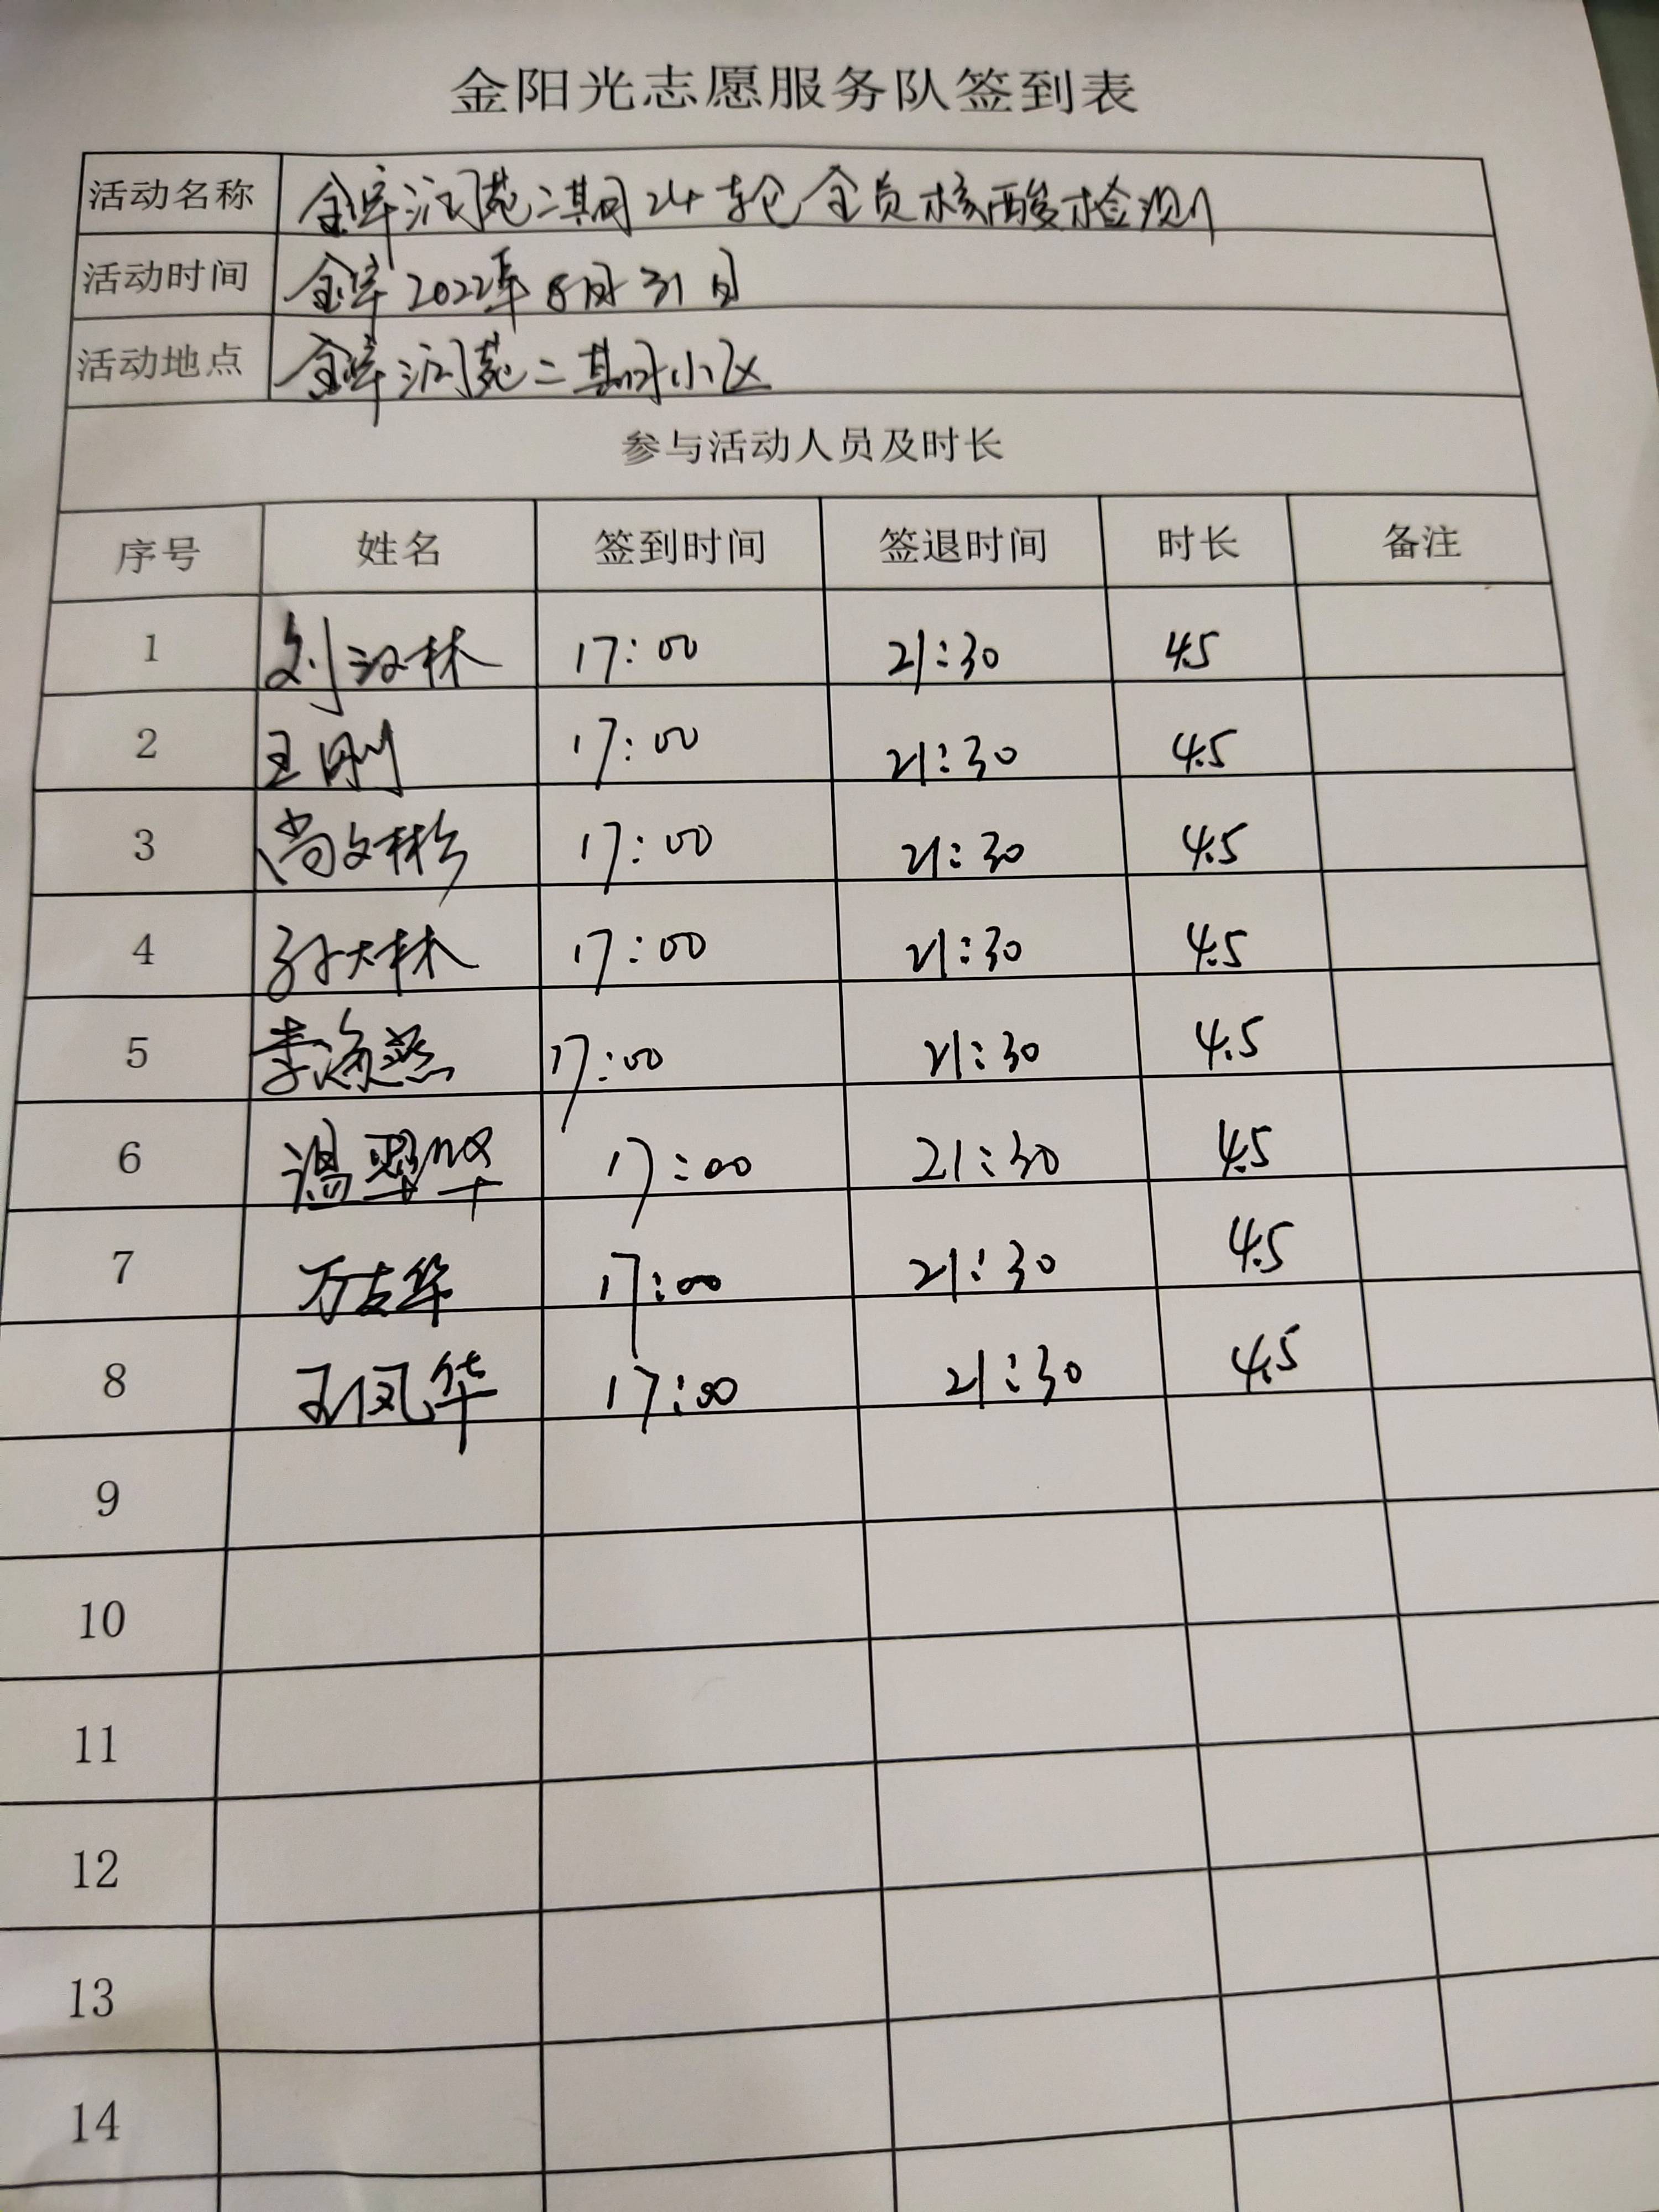 金阳光志愿服务队签到表
活动名称 金辉润苑二期24轮全员核酸检测
活动时间 2022年8月31日
活动地点 金辉润苑二期小区
参与活动人员及时长
序号 姓名 签到时间 签退时间 时长 备注
1 刘汉林 17:00 21:30 4.5
2 王刚 17:00 21:30 4.5
3 尚文彬 17:00 21:30 4.5
4 孙大林 17:00 21:30 4.5
5 李海燕 17:00 21:30 4.5
6 温翠华 17:00 21:30 4.5
7 万友华 17:00 21:30 4.5
8 王凤华 17:00 21:30 4.5
9
10
11
12
13
14